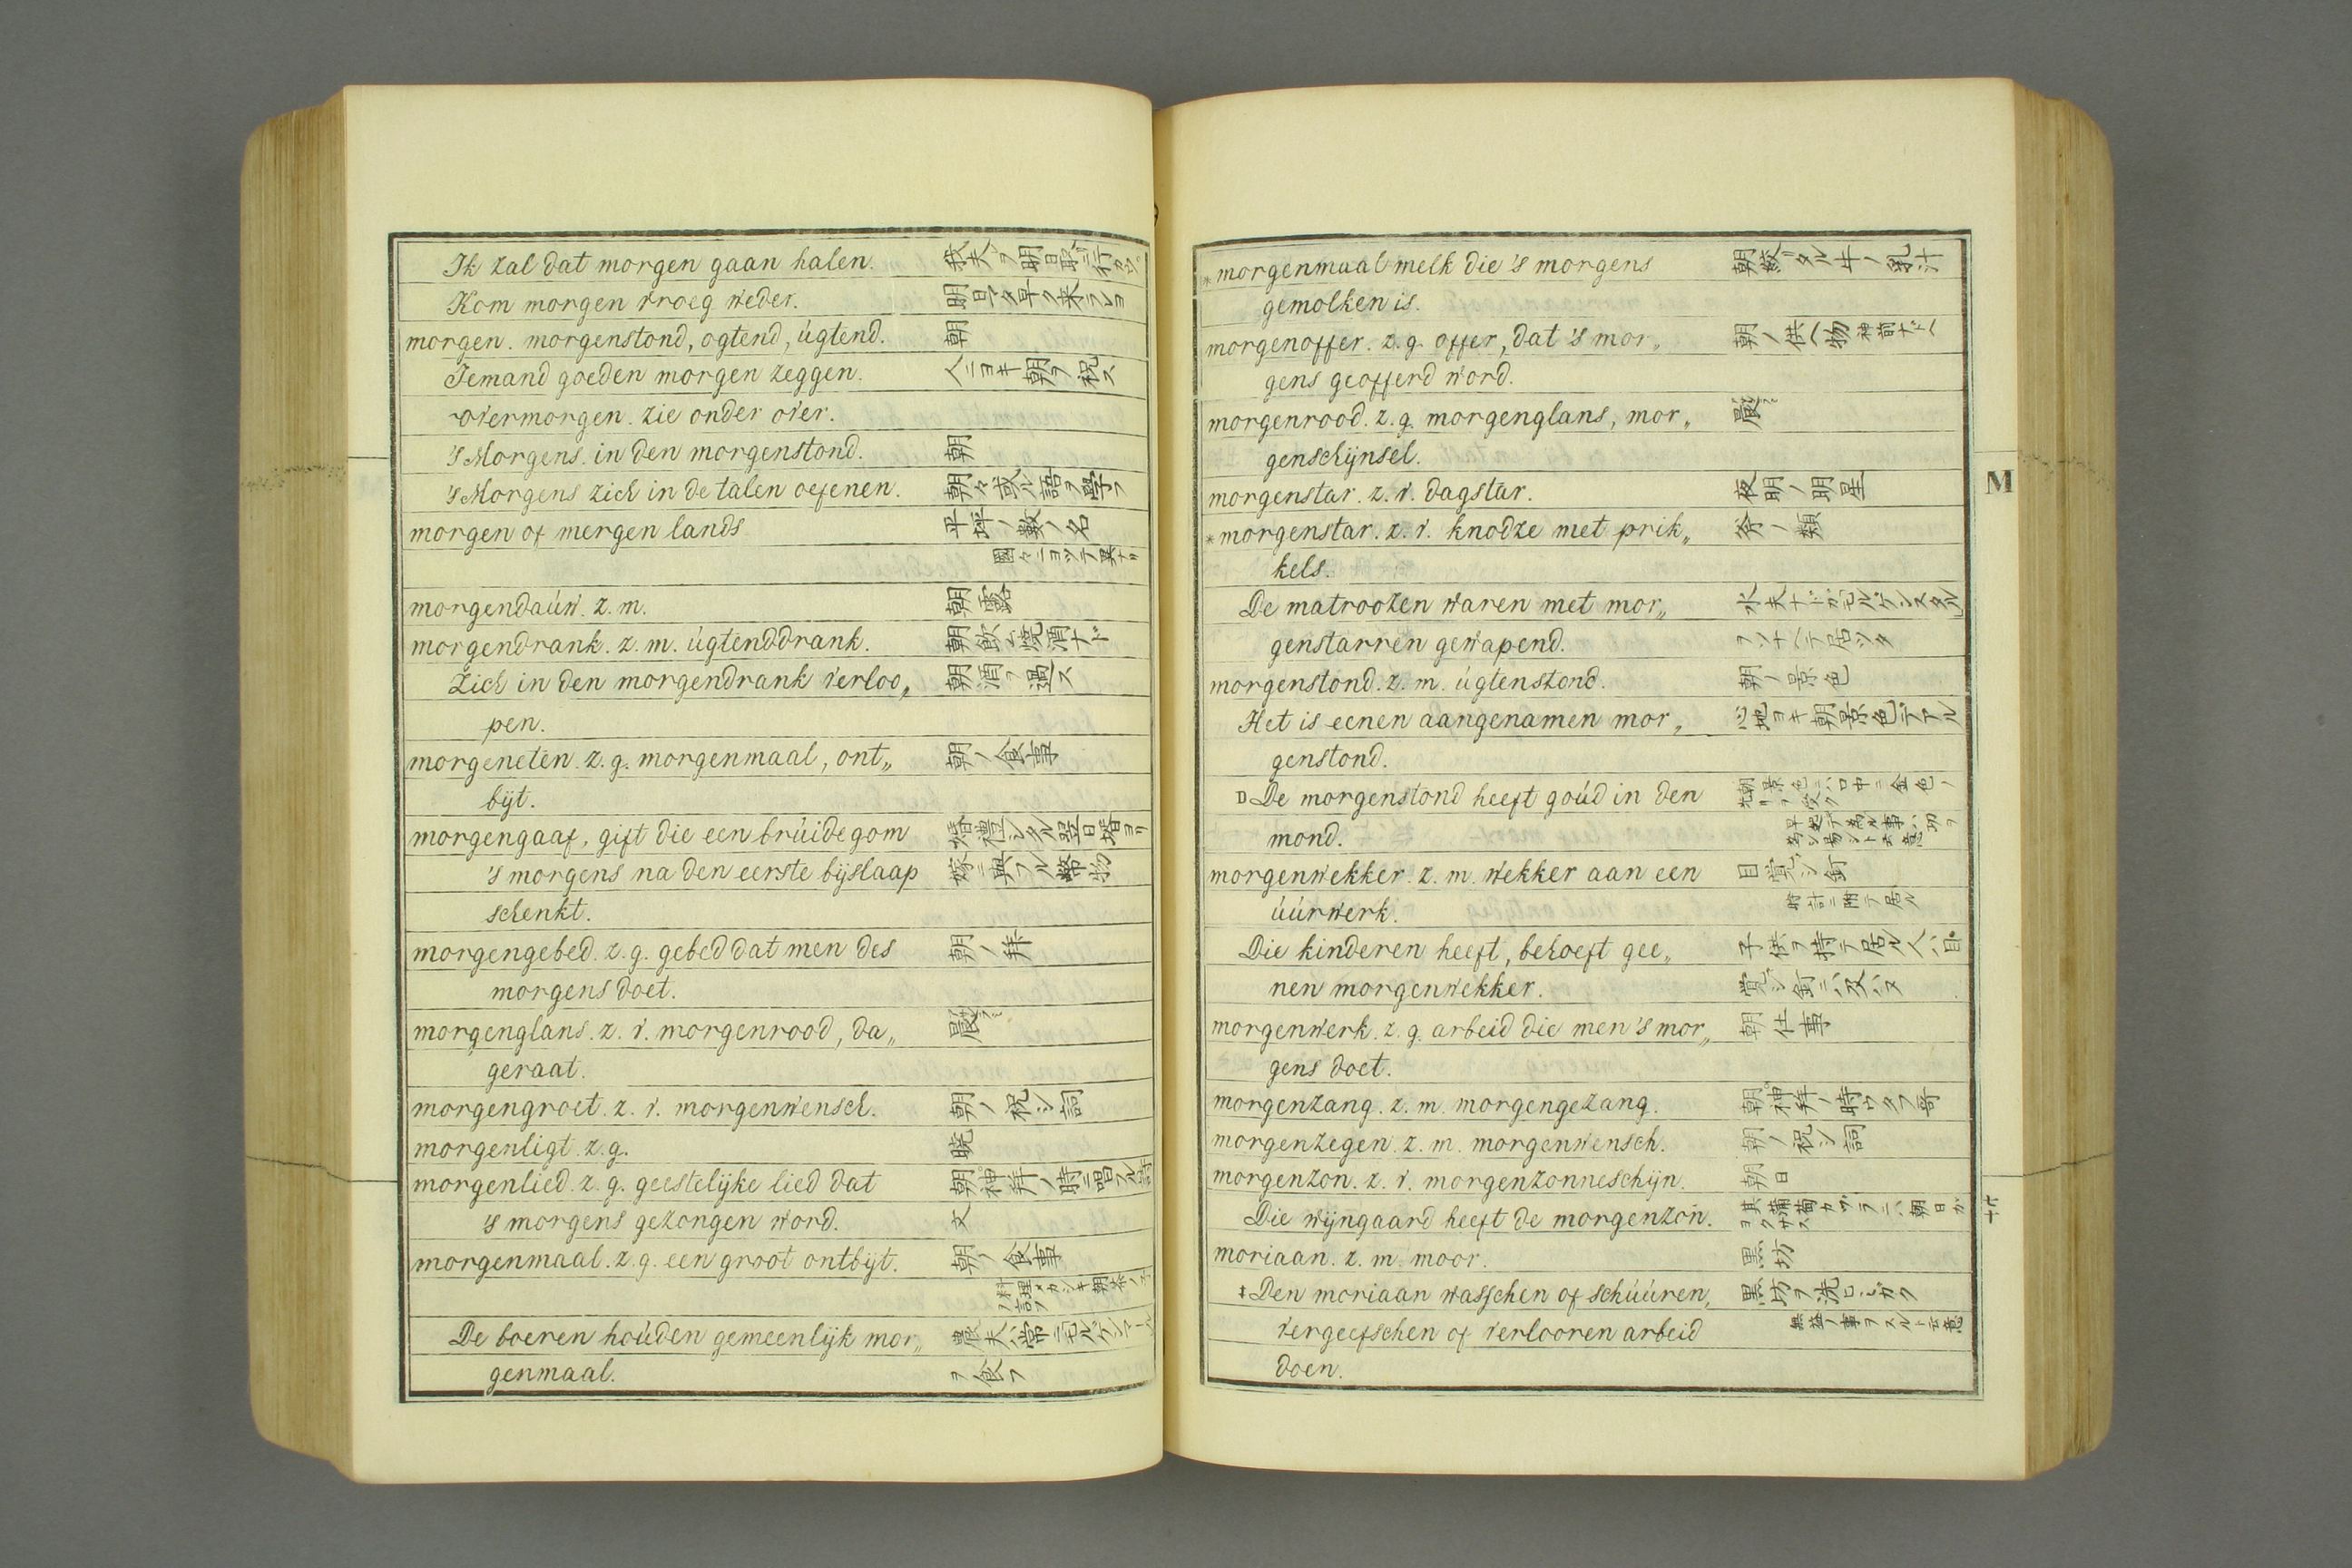 Ik zal dat morgen gaan halen. 我夫ヲ明日取ニ行カウ
Kom morgen vroeg weder. 明日早ク来ラレヨ
morgen. morgenstond, ogtend, úgtend. 朝
Iemand goeden morgen zeggen. 人ニヨキ朝ヲ祝ス
overmorgen. zie onder over.
's Morgens. in den morgenstond. 朝
's Morgens zich in de talen oefenen. 朝々或ル語ヲ學フ
morgen of mergen lands 平坪ノ數ノ名
國々ニヨツテ異ナリ
morgendaúw. z. m. 朝露
morgendrank. z. m. úgtenddrank. 朝飲ム燒酒ナド
Zich in den morgendrank verloo„ 朝酒ヲ過ス
pen.
morgeneten. z. g. morgenmaal, ont„ 朝ノ食事
bijt.
morgengaaf, gift die een brúidegom 婚禮シタル翌日壻ヨリ
's morgens na den eerste bijslaap 嫁ニ與フル幣物
schenkt.
morgengebed. z. g. gebed dat men des 朝ノ拜
morgens doet.
morgenglans. z. v. morgenrood, da„
geraat.
morgengroet. z. v. morgenwensch. 朝ノ祝シ詞
morgenligt. z. g. 暁
morgenlied. z. g. geestelijke lied dat 朝神拜ノ時ニ唱フル詩
's morgens gezongen word. 文
morgenmaal. z. g. een groot ontbijt. 朝ノ食事
De boeren hoúden gemeenlijk mor„ 農夫ハ常ニモルゲンマール
genmaal. ヲ食フ
* morgenmaal melk die 's morgens 朝絞リタル牛ノ乳汁
gemolken is.
morgenoffer. z. g. offer, dat 's mor„ 朝ノ供ヘ物 神前ナドヘ
gens geofferd word.
morgenrood. z. g. morgenglans, mor„
genschijnsel.
morgenstar. z. v. dagstar. 夜明ノ明星
* morgenstar. z. v. knodze met prik„ 斧ノ類
kels.
De matroozen waren met mor„ 水夫ナドガモルゲンスタル
genstarren gewapend. ヲソナヘテ居ツタ
morgenstond. z. m. úgtenstond. 朝ノ景色
Het is eenen aangenamen mor„ 心地ヨキ朝景色デアル
genstond.
D De morgenstond heeft goúd in den 朝景色ハ口中ニ金色ノ
mond.
morgenwekker. z. m. wekker aan een 目覚シ針
úúrwerk. 時計ニ附テ居ル
Die kinderen heeft, behoeft gee„ 子供ヲ持テ居ル人ハ目
nen morgenwekker. 覚シ針ニハ及ハヌ
morgenwerk. z. g. arbeid die men 's mor„ 朝仕事
gens doet.
morgenzang. z. m. morgengezang. 朝神拜ノ時ウタフ哥
morgenzegen. z. m. morgenwensch. 朝ノ祝シ詞
morgenzon. z. v. morgenzonneschijn. 朝日
Die wijngaard heeft de morgenzon. 其葡萄カヅラニハ朝日ガヨクサス
moriaan. z. m. moor. 黒坊
‡ Den moriaan wasschen of schúúren, 黒坊ヲ洗ヒミガク
vergeefschen of verlooren arbeid 無益ノ事ヲスルト云意
doen.
M